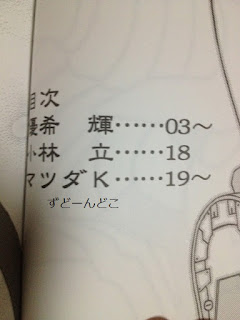 目次
優希 輝……03～
小林 立……18
マツダK……19～
ずどーんどこ